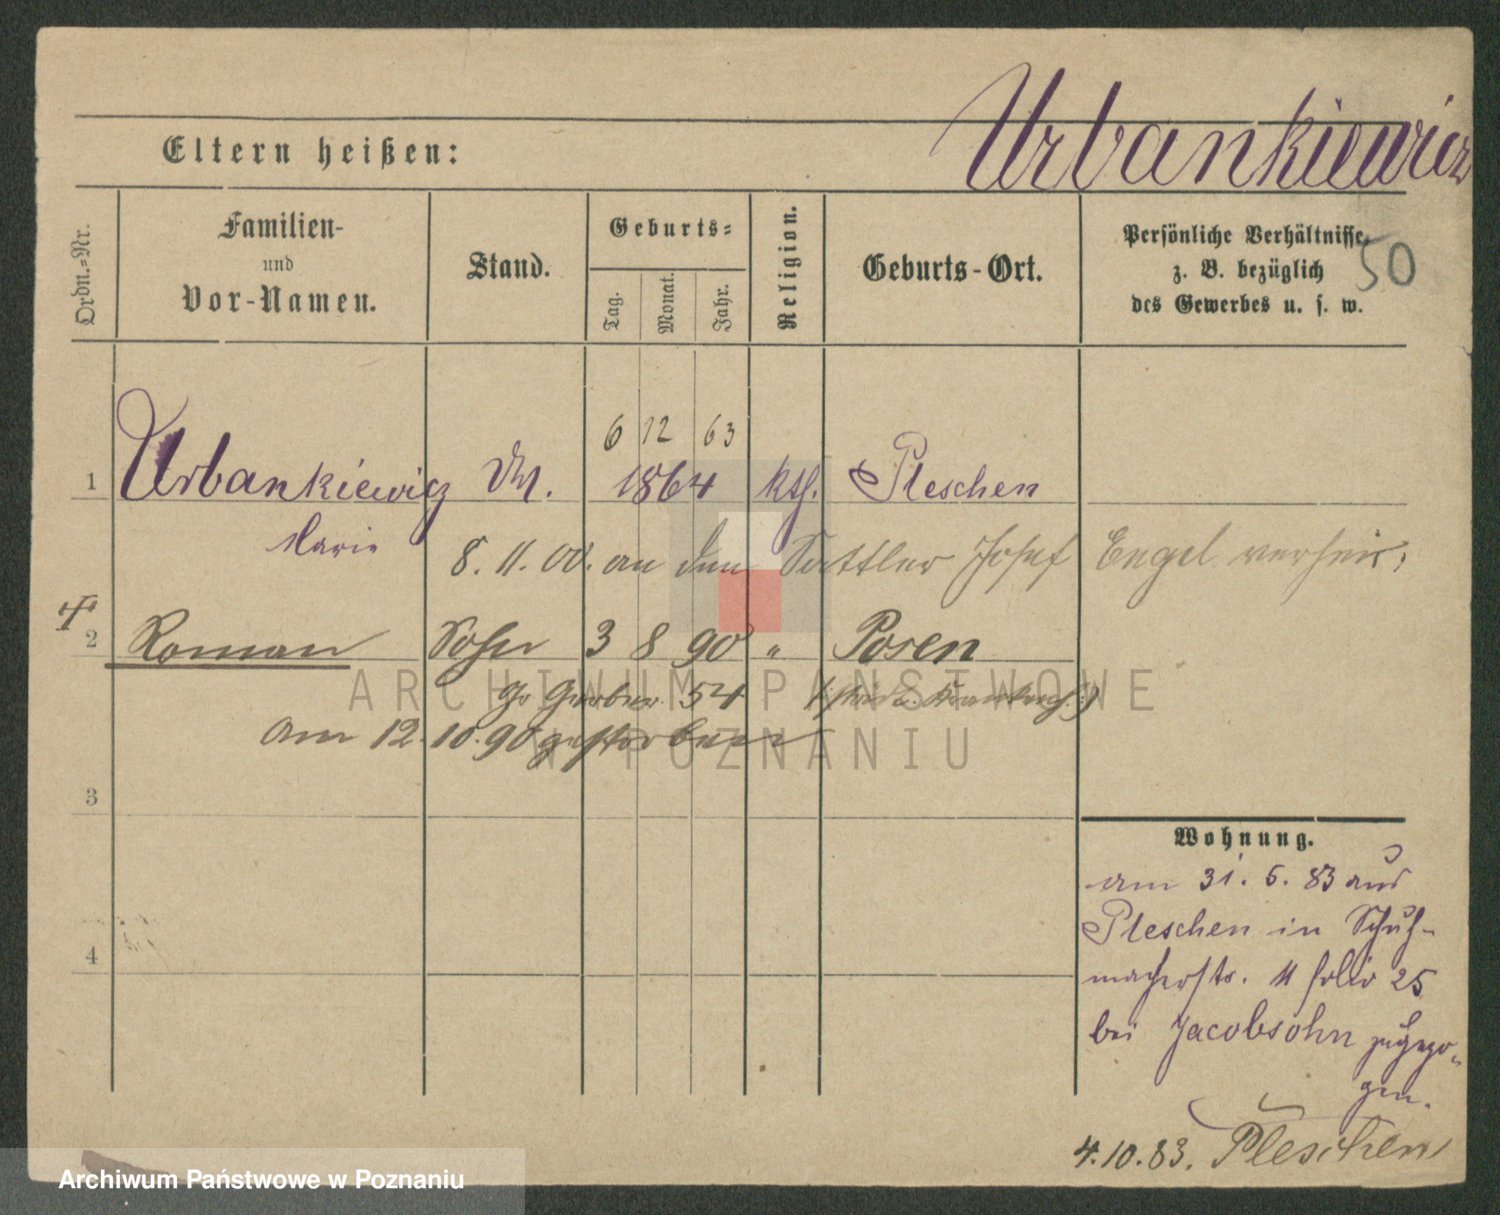 Urbankiewicz
Eltern heißen:
Ordn.-Nr.
Familien-
und
Vor-Namen.
Stand.
Geburts-
Tag.
Monat.
Jahr.
Religion.
Geburts-Ort.
Persönliche Verhältnisse,
z. B. bezüglich
des Gewerbes u. s. w.
50
6 12 63
1 Urbankiewicz 1864 kth. Pleschen
Marie
8. 11. 00. an den Sattler Josef Engel verheir.
2 Roman Sohn 3 8 90 " Posen
Gr Gerber 54
am 12.10.90 gestorben
3
4
Wohnung.
am 31. 5. 83 aus
Pleschen in Schuh-
macherstr. 11 folio 25
bei Jacobsohn zugezo-
gen.
4.10.83. Pleschen
ARCHIWUM PAŃSTWOWE
W POZNANIU
Archiwum Państwowe w Poznaniu